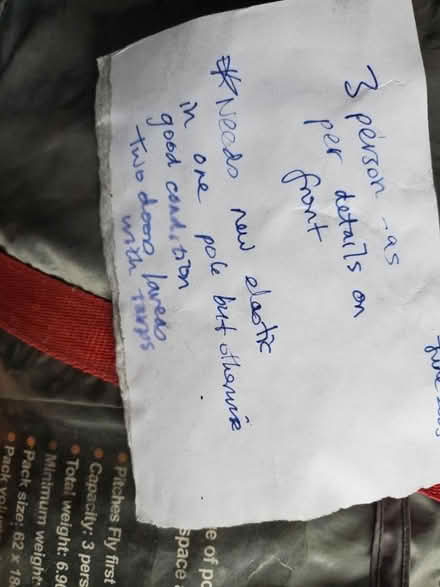 3 person - as
per details on
front
* Needs new elastic
in one pole but otherwise
good condition
two doors / areas
with tarps
e of po
space
Pitches Fly first
Capacity: 3 pers
Total weight: 6.9
Minimum weight:
Pack size: 62 x 18
Pack volu